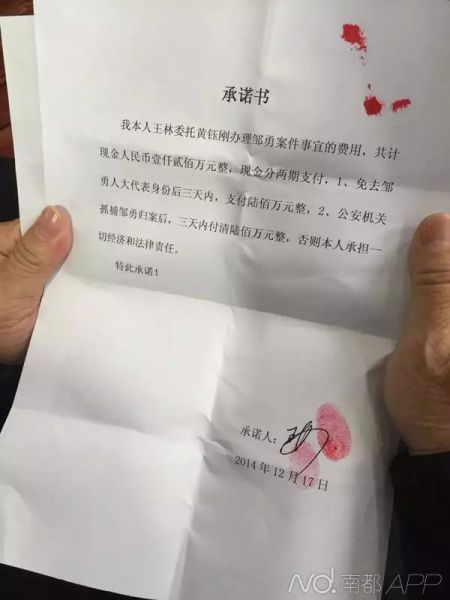 承诺书
我本人王林委托黄钰刚办理邹勇案件事宜的费用，共计
现金人民币壹仟贰佰万元整，现金分两期支付，1、免去邹
勇人大代表身份后三天内，支付陆佰万元整，2、公安机关
抓捕邹勇归案后，三天内付清陆佰万元整，否则本人承担一
切经济和法律责任。
特此承诺！
承诺人：
2014年12月17日
ND.南都APP